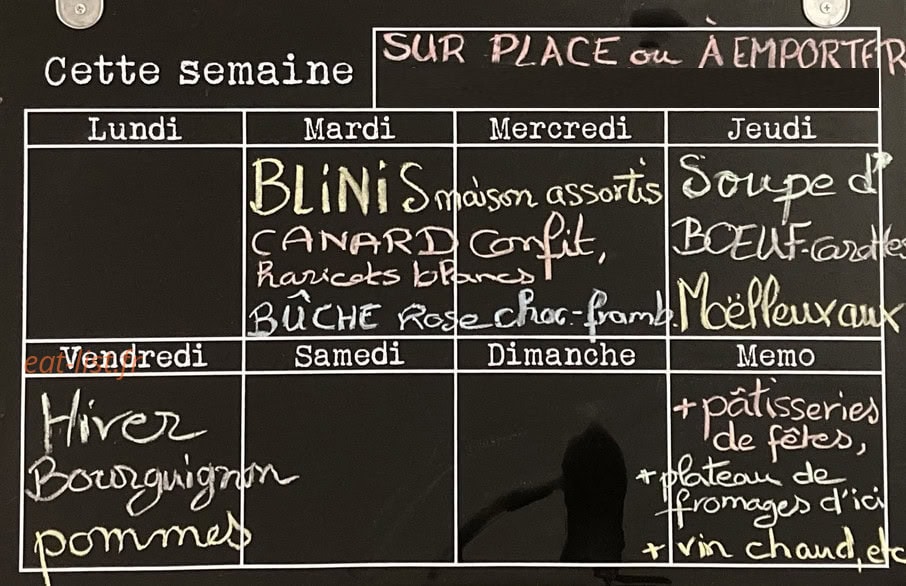 Cette semaine
SUR PLACE ou À EMPORTER
Lundi
Mardi
Mercredi
Jeudi
BLiNiS maison assortis
CANARD Confit,
haricots blancs
BÛCHE Rose choc-framb.
Soupe d'
BOEUF-carottes
Moëlleux aux
Vendredi
eat-list.fr
Samedi
Dimanche
Memo
Hiver
Bourguignon
pommes
+ pâtisseries
de fêtes,
+ plateau de
fromages d'ici
+ vin chaud, etc